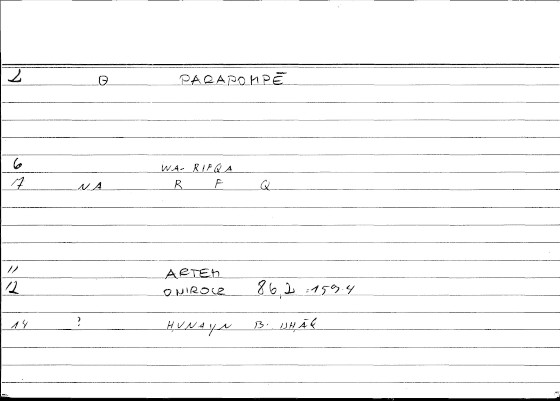 2 θ PARAPOMPĒ
6 WA-RIFQA
7 NA R F Q
11 ARTEM
12 ONIROCR 86,2 = 159.4
14 ? HUNAYN B. ISHĀQ